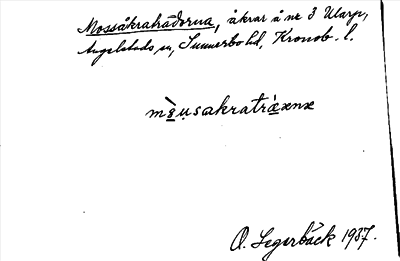 Mossåkrahädorna, åkrar å nr 3 Ularp,
Angelstads sn, Sunnerbo hd, Kronob. l.
mòu̯sakratràenæ
O. Segerbäck 1937.